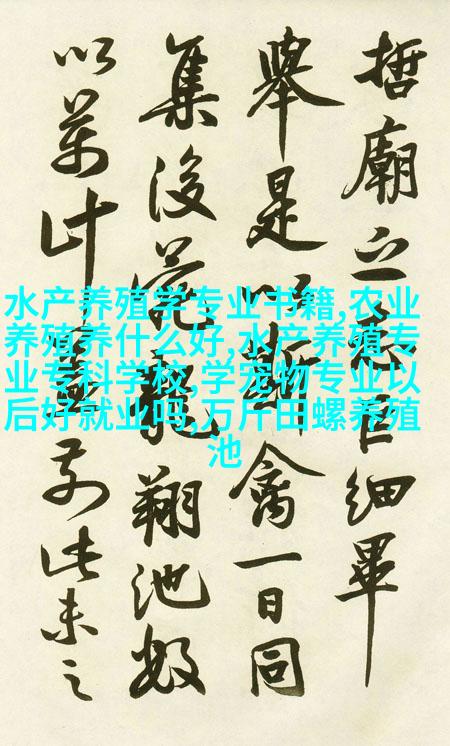 哲廟之臣細畢
舉是以斷禽一日同
集後苑龍翔池
以萬計前此未之
水产养殖学专业书籍,农业
养殖养什么好,水产养殖专
业专科学校,学宠物专业以
后好就业吗,万斤田螺养殖
池